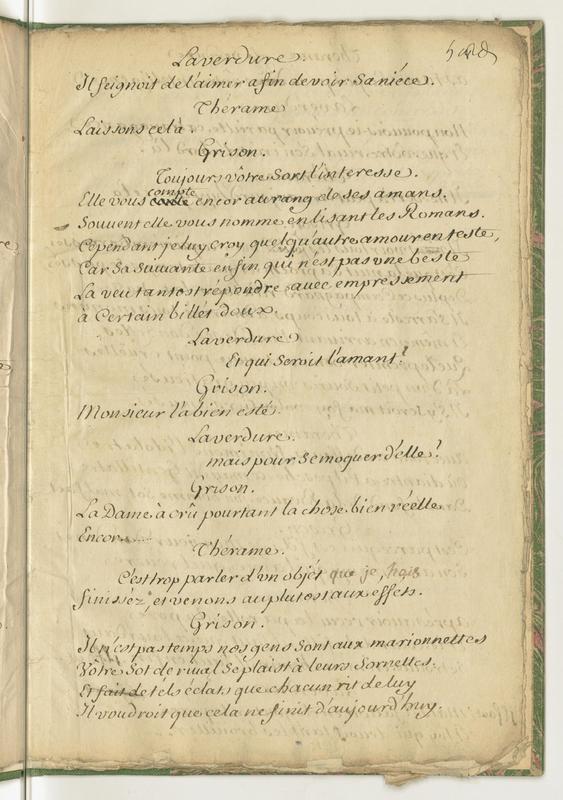 Laverdure.
Il feignoit de l'aimer afin de voir sa niéce.
Thérame
Laissons celà.
Grison.
Toujours vôtre sort l'interesse.
compte
Elle vous encor au rang de ses amans.
Souvent elle vous nomme en lisant les Romans.
Cependant je luy croy quelqu'autre amour en teste,
Car sa suivante enfin qui n'est pas vne beste
La veu tantost répondre avec empressement
à Certain billét doux.
Laverdure.
Et qui seroit l'amant?
Grison.
Monsieur l'a bien esté.
Laverdure.
mais pour se moquer d'elle?
Grison.
La Dame à crû pourtant la chose bien réelle
Encor......
Thérame.
C'est trop parler d'vn objét que je hais
finissez, et venons au plutost aux effets.
Grison.
Il n'est pas temps nos gens sont aux marionnettes
Vôtre Sot de rival se plaist à leurs Sornettes.
Et fait de tels éclats que chacun rit de luy
Il voudroit que cela ne finit d'aujourd'huy.